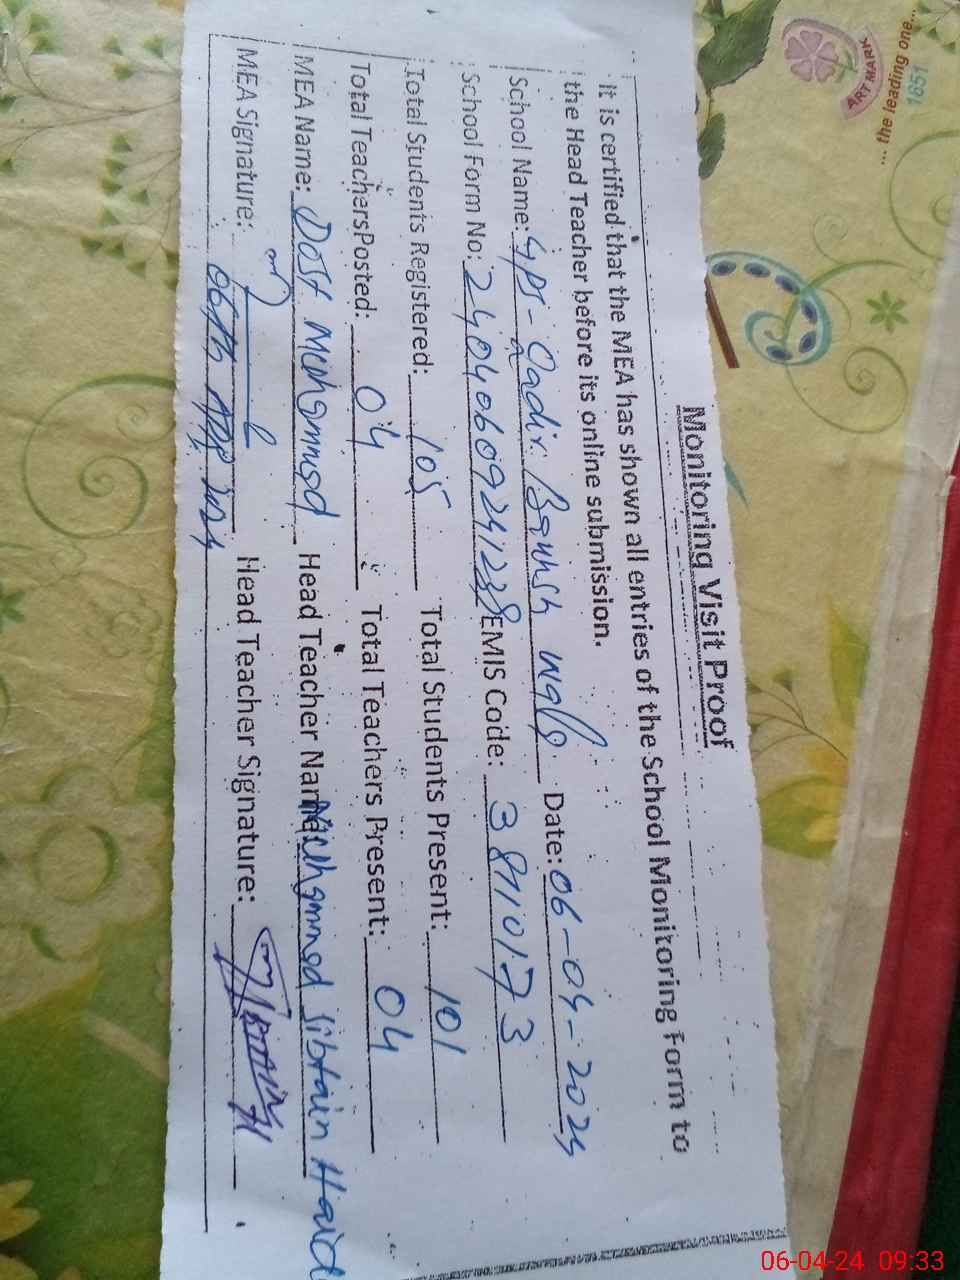 Monitoring Visit Proof
It is certified that the MEA has shown all entries of the School Monitoring Form to
the Head Teacher before its online submission.
School Name: GPS - Qadir Bakhsh wala Date: 06-04-2024
School Form No: 24040609241238 EMIS Code: 38110173
Total Students Registered: 105 Total Students Present: 101
Total Teachers Posted: 04 Total Teachers Present: 04
MEA Name: Dost Muhammad Head Teacher Name Muhammad Sibtain Haid
MEA Signature: Head Teacher Signature:
06/04 2024
ART MARK
... the leading one...
1851
06-04-24 09:33